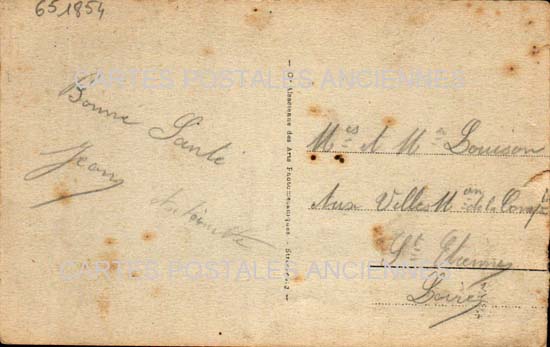 651854
CARTES POSTALES ANCIENNES
Bonne Santé
Jeany
Antoinette
— Cie Alsacienne des Arts Photomécaniques. - Strasbg. 2 —
Mes et Mr Louison
Aux Villes
St Etienne
Loire
CARTES POSTALES ANCIENNES